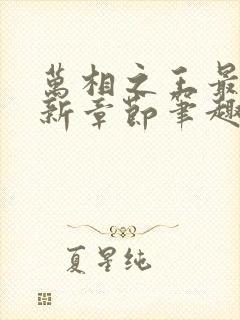 萬相之王最
新章節筆趣
夏星纯